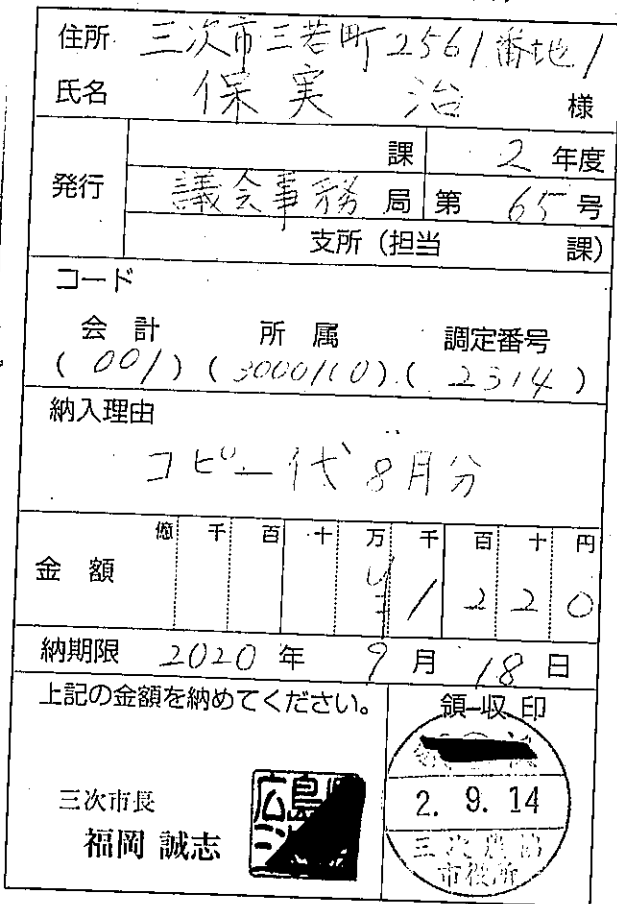 住所 三次市三若町2561番地1
氏名 保実 治 様
発行
課 2 年度
議会事務局 第 65 号
支所 (担当 課)
コード
会計 所属 調定番号
(001) (3000110) (2314)
納入理由
コピー代 8月分
億 千 百 十 万 千 百 十 円
金額 ¥ 1 2 2 0
納期限 2020 年 9 月 18 日
上記の金額を納めてください。
領収印
2. 9. 14
三次農協
市役所
三次市長
福岡 誠志
広島